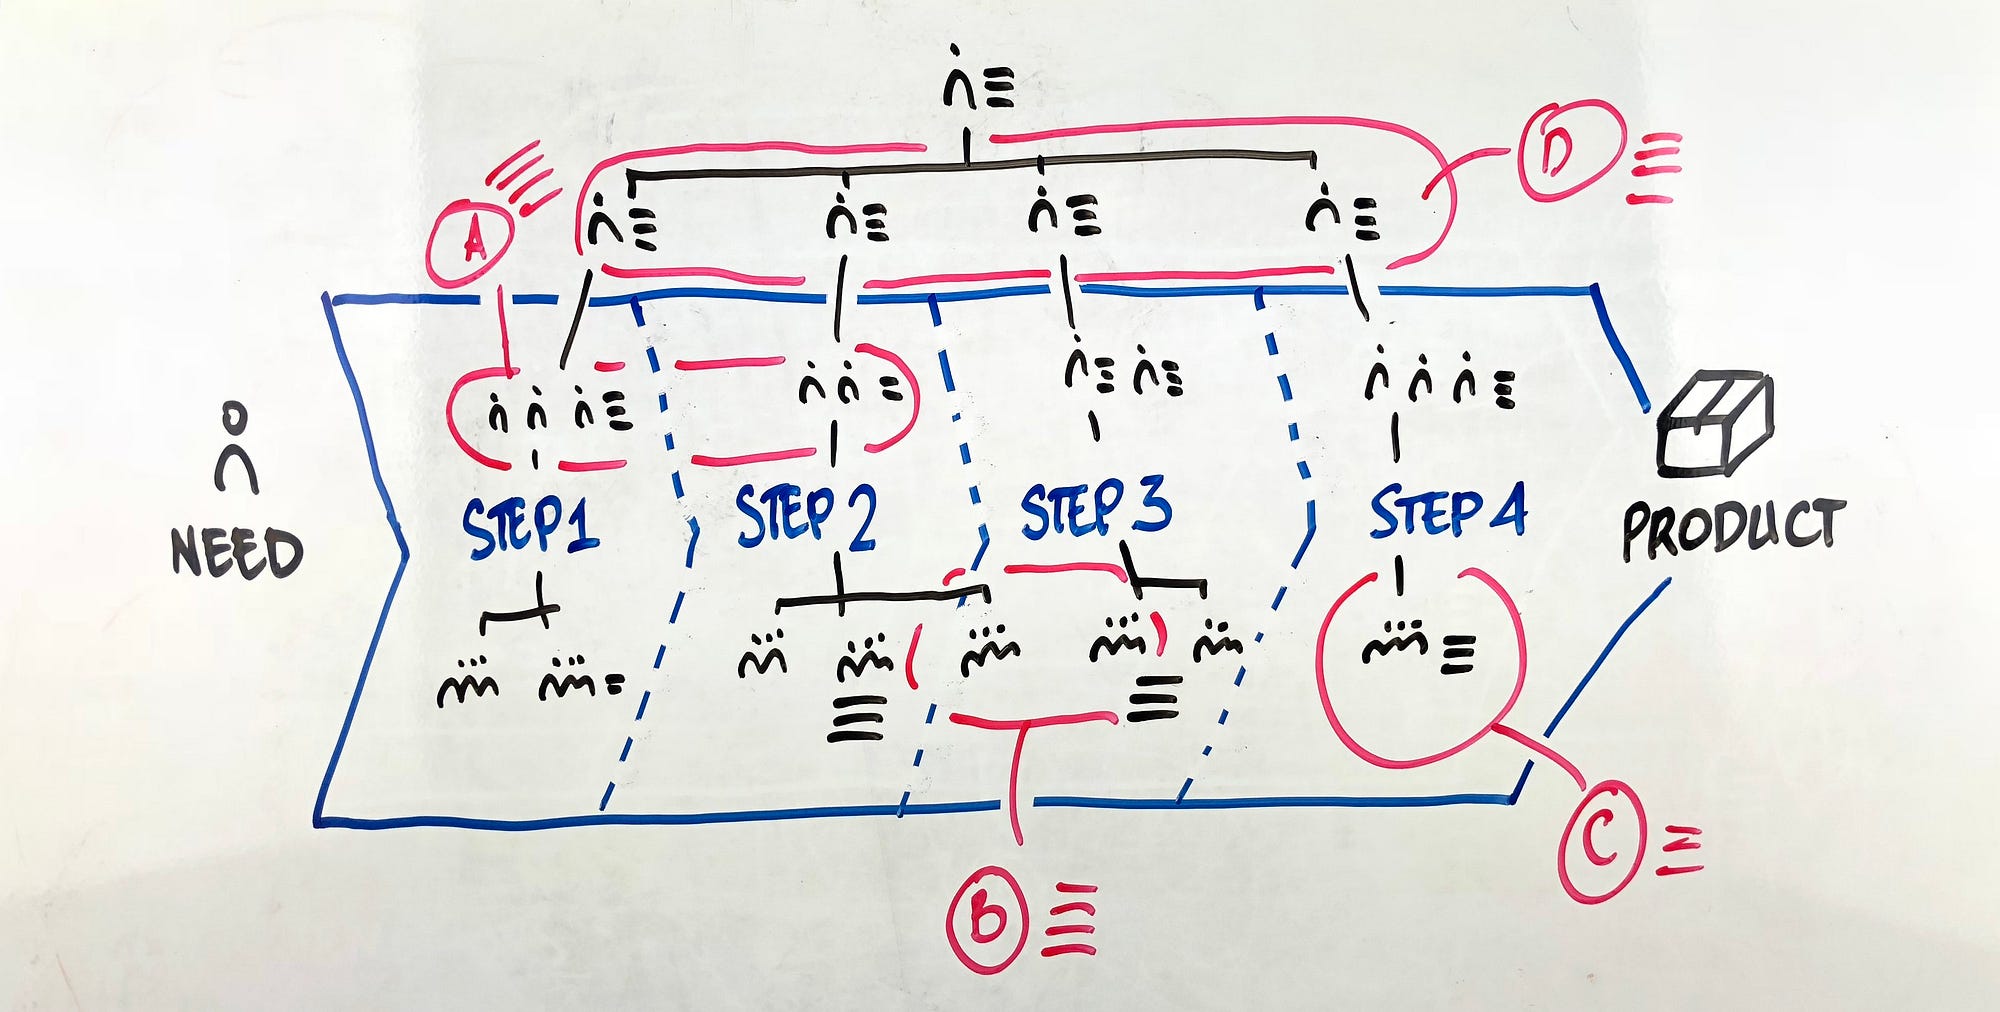 A
D
STEP 1
STEP 2
STEP 3
STEP 4
NEED
PRODUCT
B
C